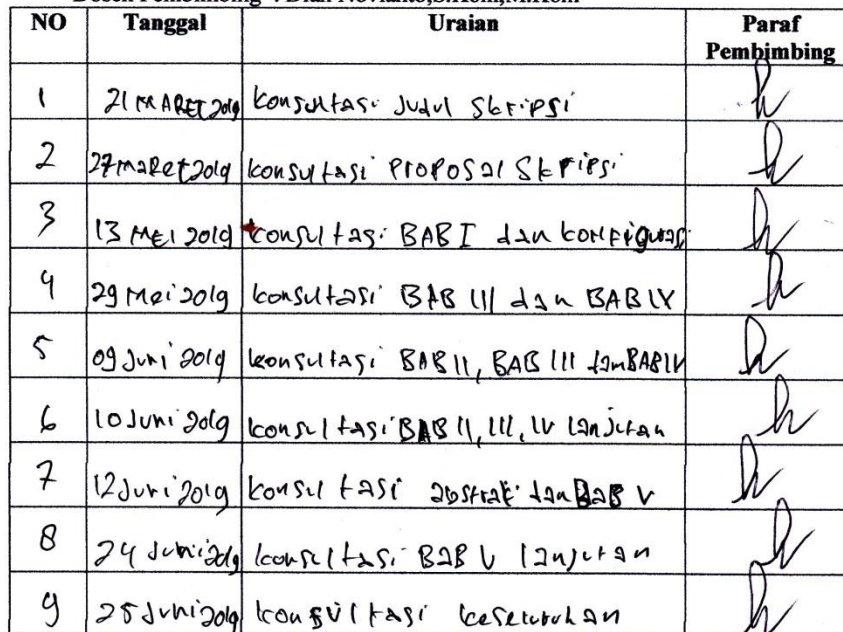 Dosen Pembimbing : Dian Novianto,S.Kom,M.Kom
NO Tanggal Uraian Paraf Pembimbing
1 21 MARET 2019 konsultasi Judul Skripsi
2 27 maRet 2019 konsultasi PROPOSal SkRiPSi
3 13 MEI 2019 konsultasi BAB I dan konfigurasi
4 29 Mei 2019 konsultasi BAB III dan BAB IV
5 09 Juni 2019 konsultasi BAB II, BAB III dan BAB IV
6 10 Juni 2019 konsultasi BAB II, III, IV lanjutan
7 12 Juni 2019 konsultasi abstrak dan BaB V
8 24 Juni 2019 konsultasi BaB V lanjutan
9 25 Juni 2019 konsultasi keseluruhan